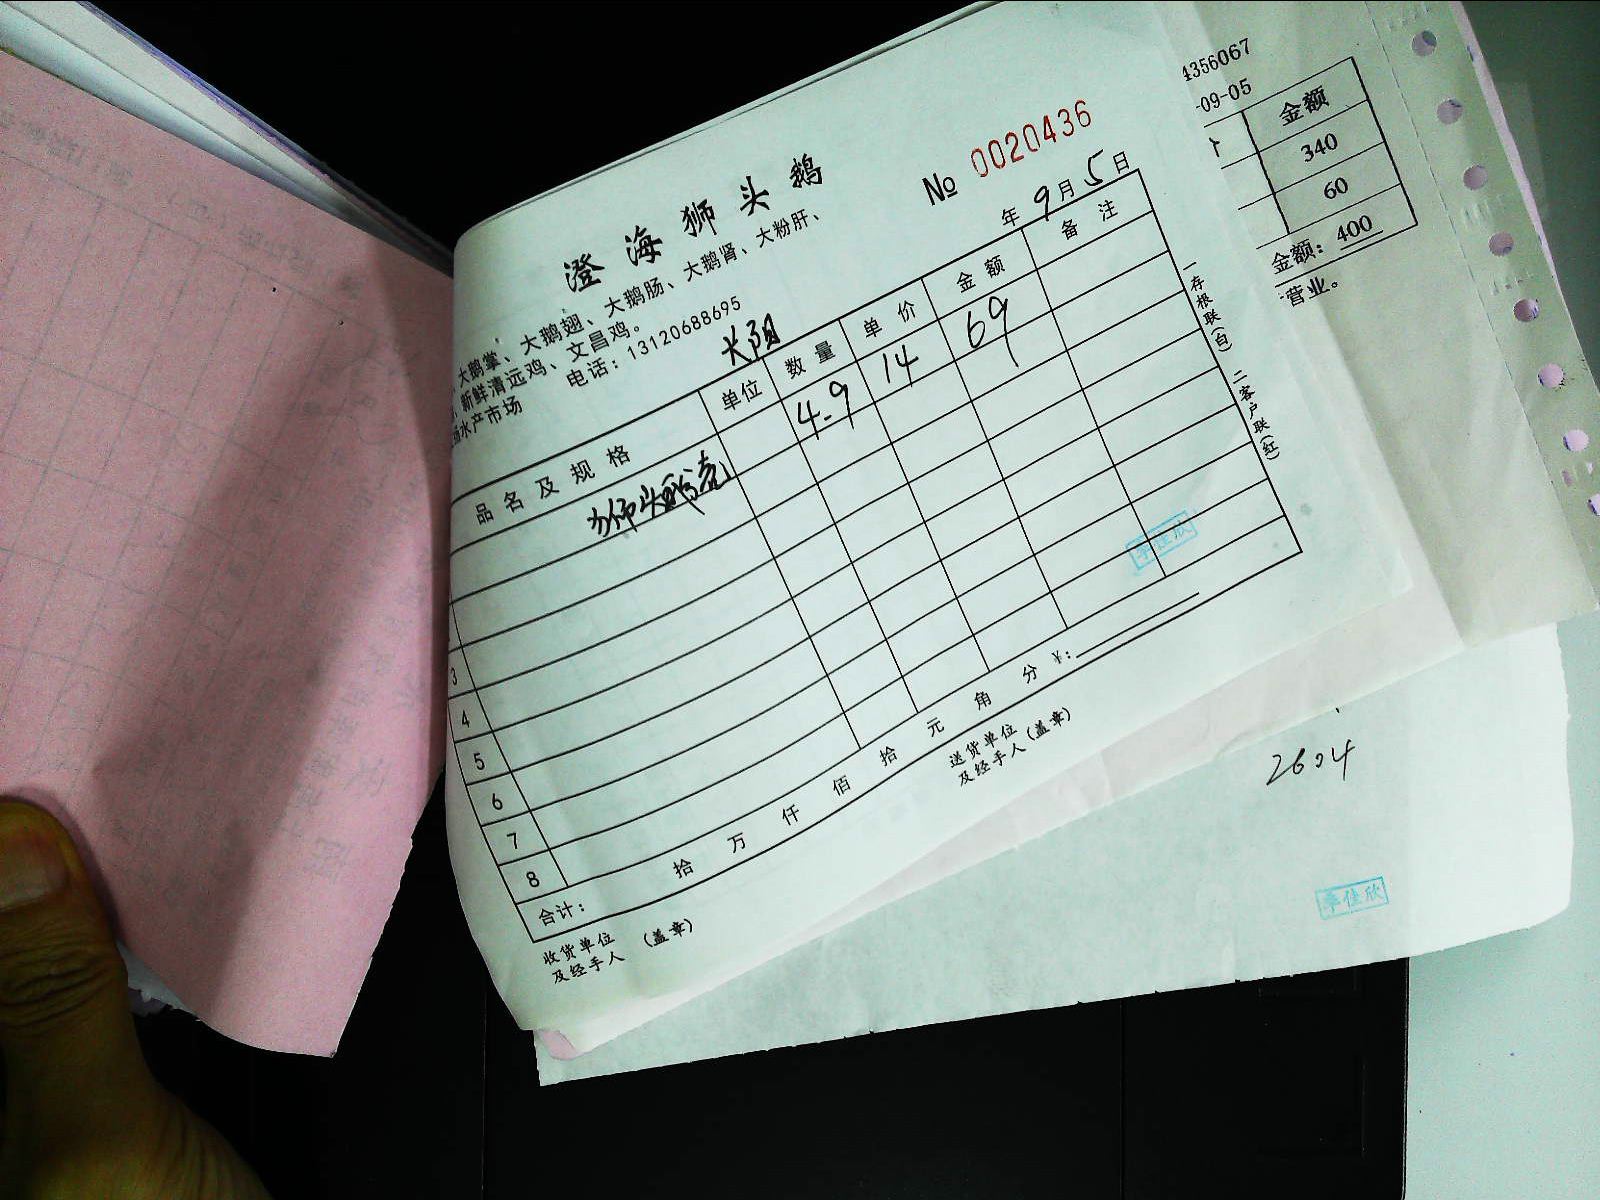 澄海狮头鹅
№ 0020436
大鹅掌、大鹅翅、大鹅肠、大鹅肾、大粉肝、
新鲜清远鸡、文昌鸡。
水产市场 电话：13120688695
年 9月5日
品名及规格 单位 数量 单价 金额 备注
4.9 14 69
3
4
5
6
7
8
合计： 拾 万 仟 佰 拾 元 角 分 ¥：
收货单位及经手人 （盖章） 送货单位及经手人（盖章）
一存根联（白） 二客户联（红）
李佳欣
4356067
-09-05
金额
340
60
金额：400
营业。
2604
李佳欣